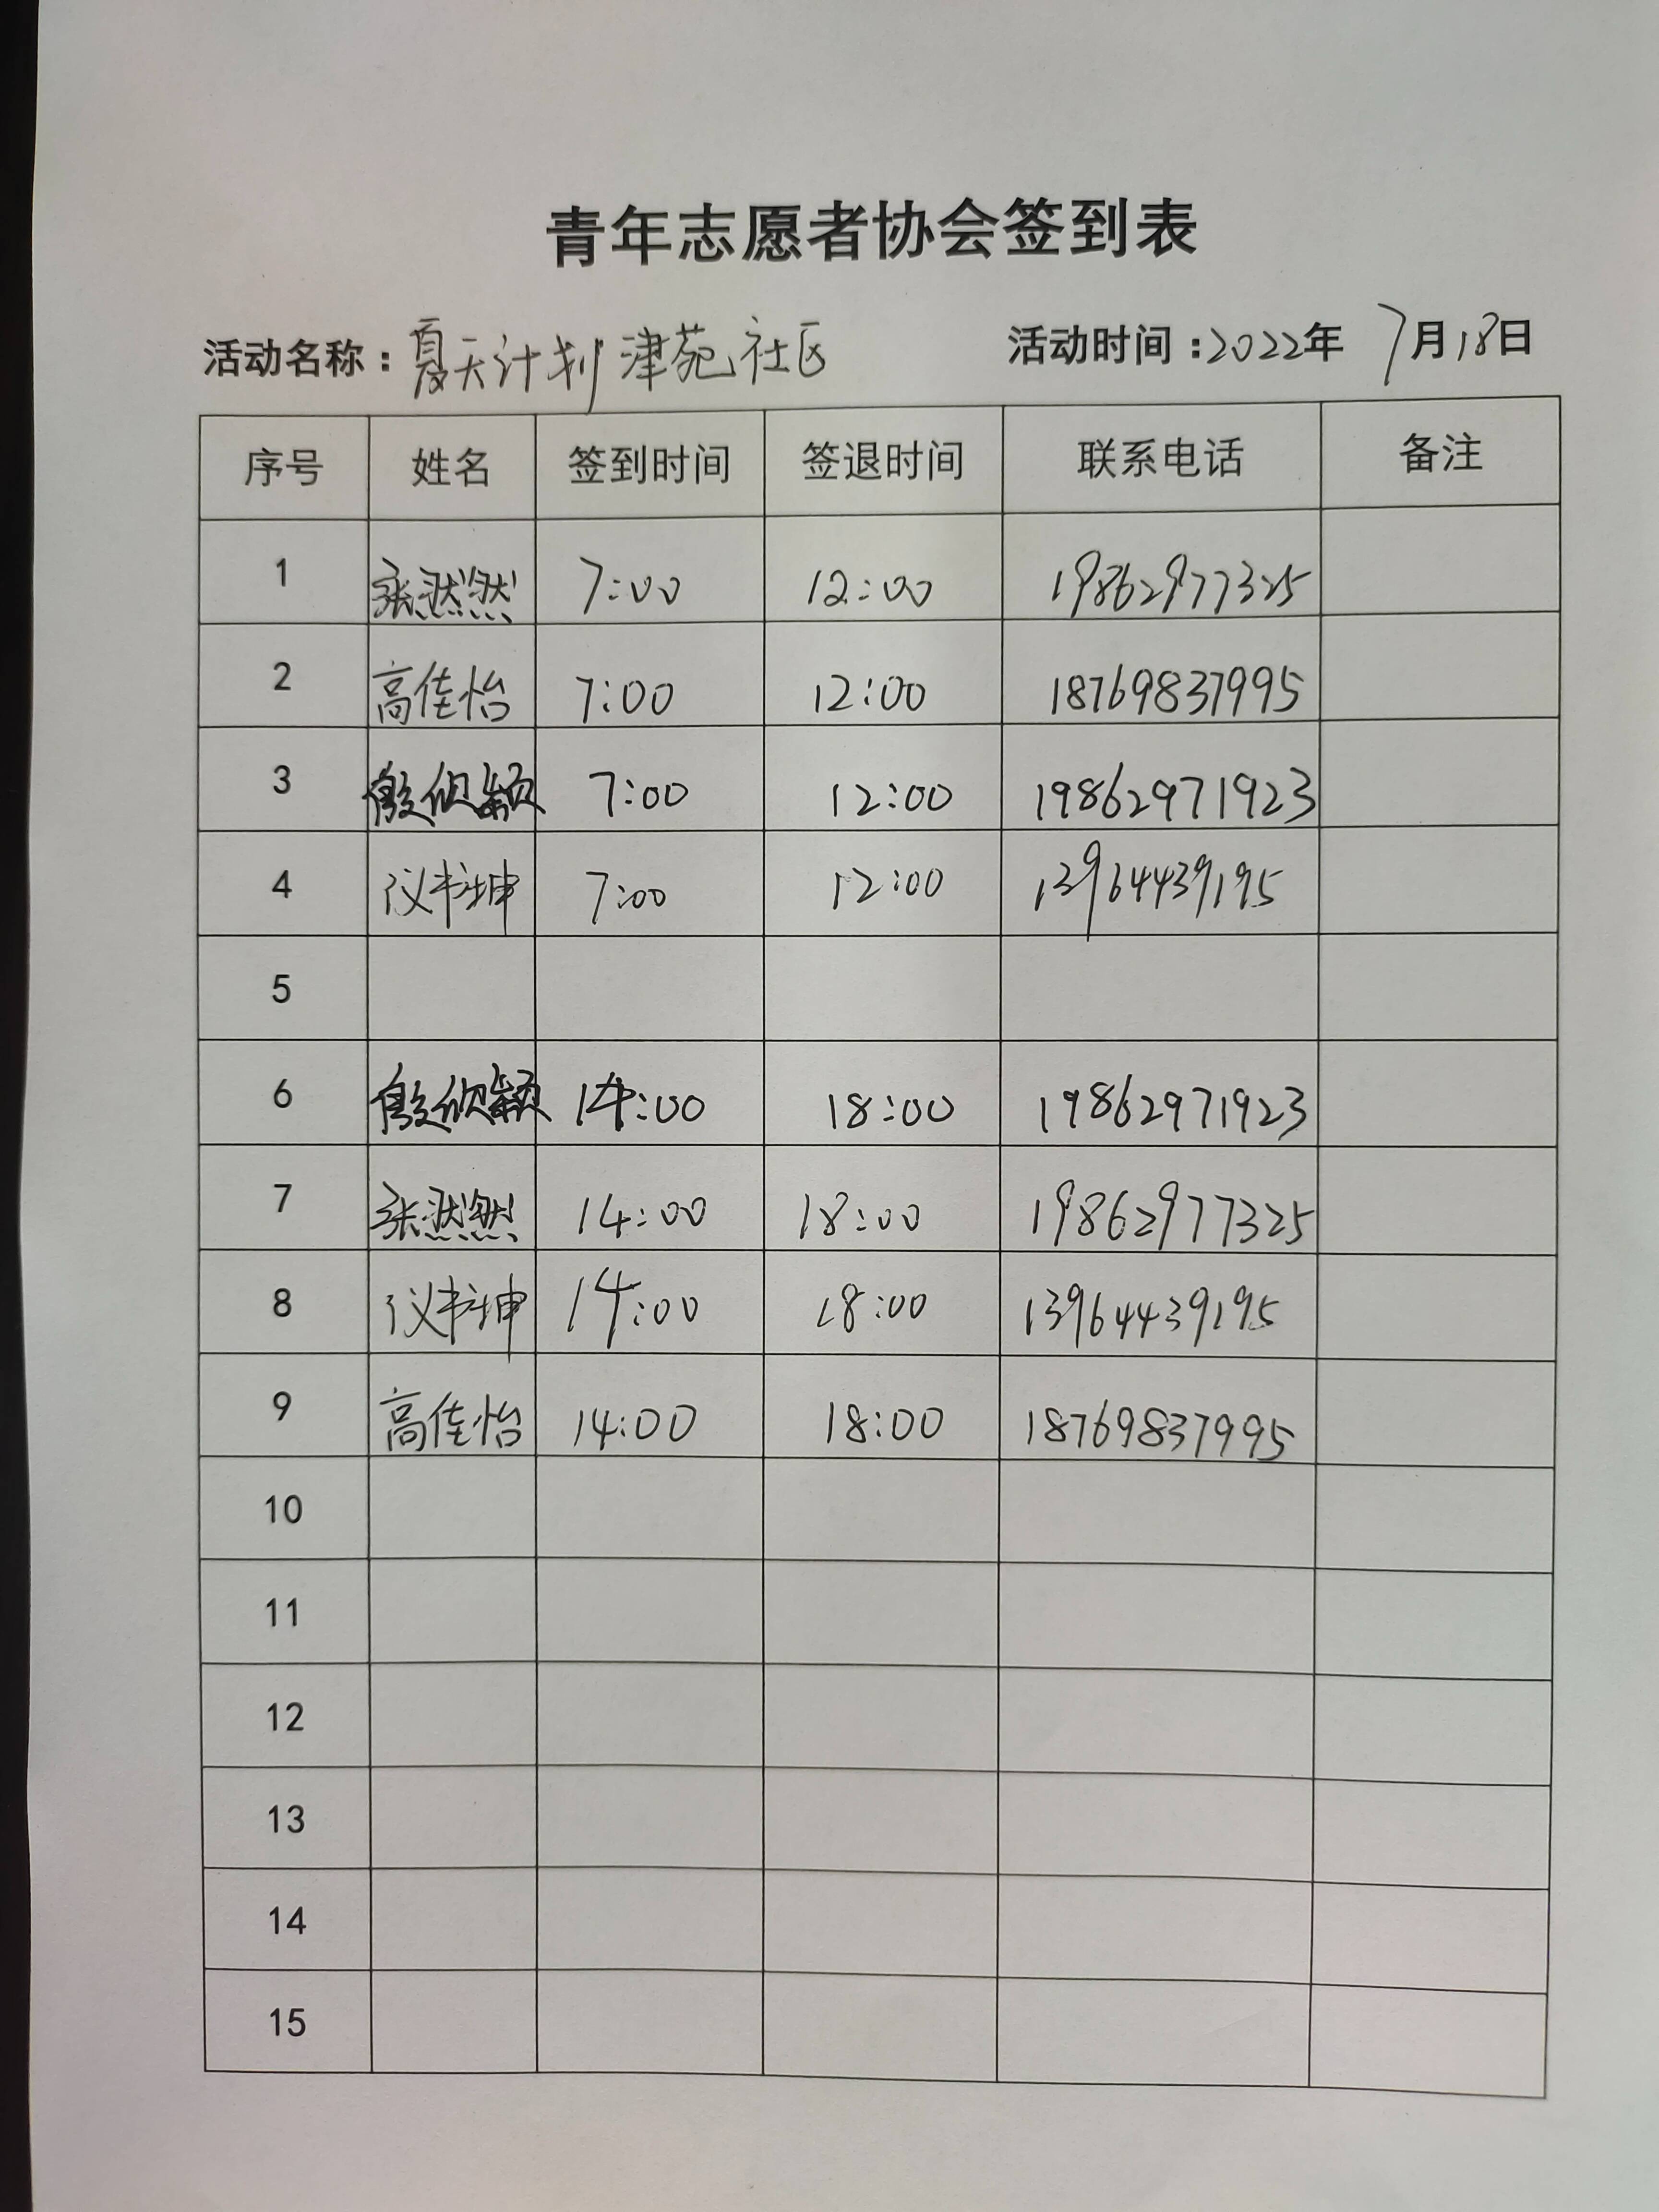 青年志愿者协会签到表
活动名称：夏天计划 津苑社区 活动时间：2022年 7月18日
序号 姓名 签到时间 签退时间 联系电话 备注
1 张然然 7:00 12:00 19862977325
2 高佳怡 7:00 12:00 18769837995
3 殷欣颖 7:00 12:00 19862971923
4 仪书坤 7:00 12:00 13964439195
5
6 殷欣颖 14:00 18:00 19862971923
7 张然然 14:00 18:00 19862977325
8 仪书坤 14:00 18:00 13964439195
9 高佳怡 14:00 18:00 18769837995
10
11
12
13
14
15